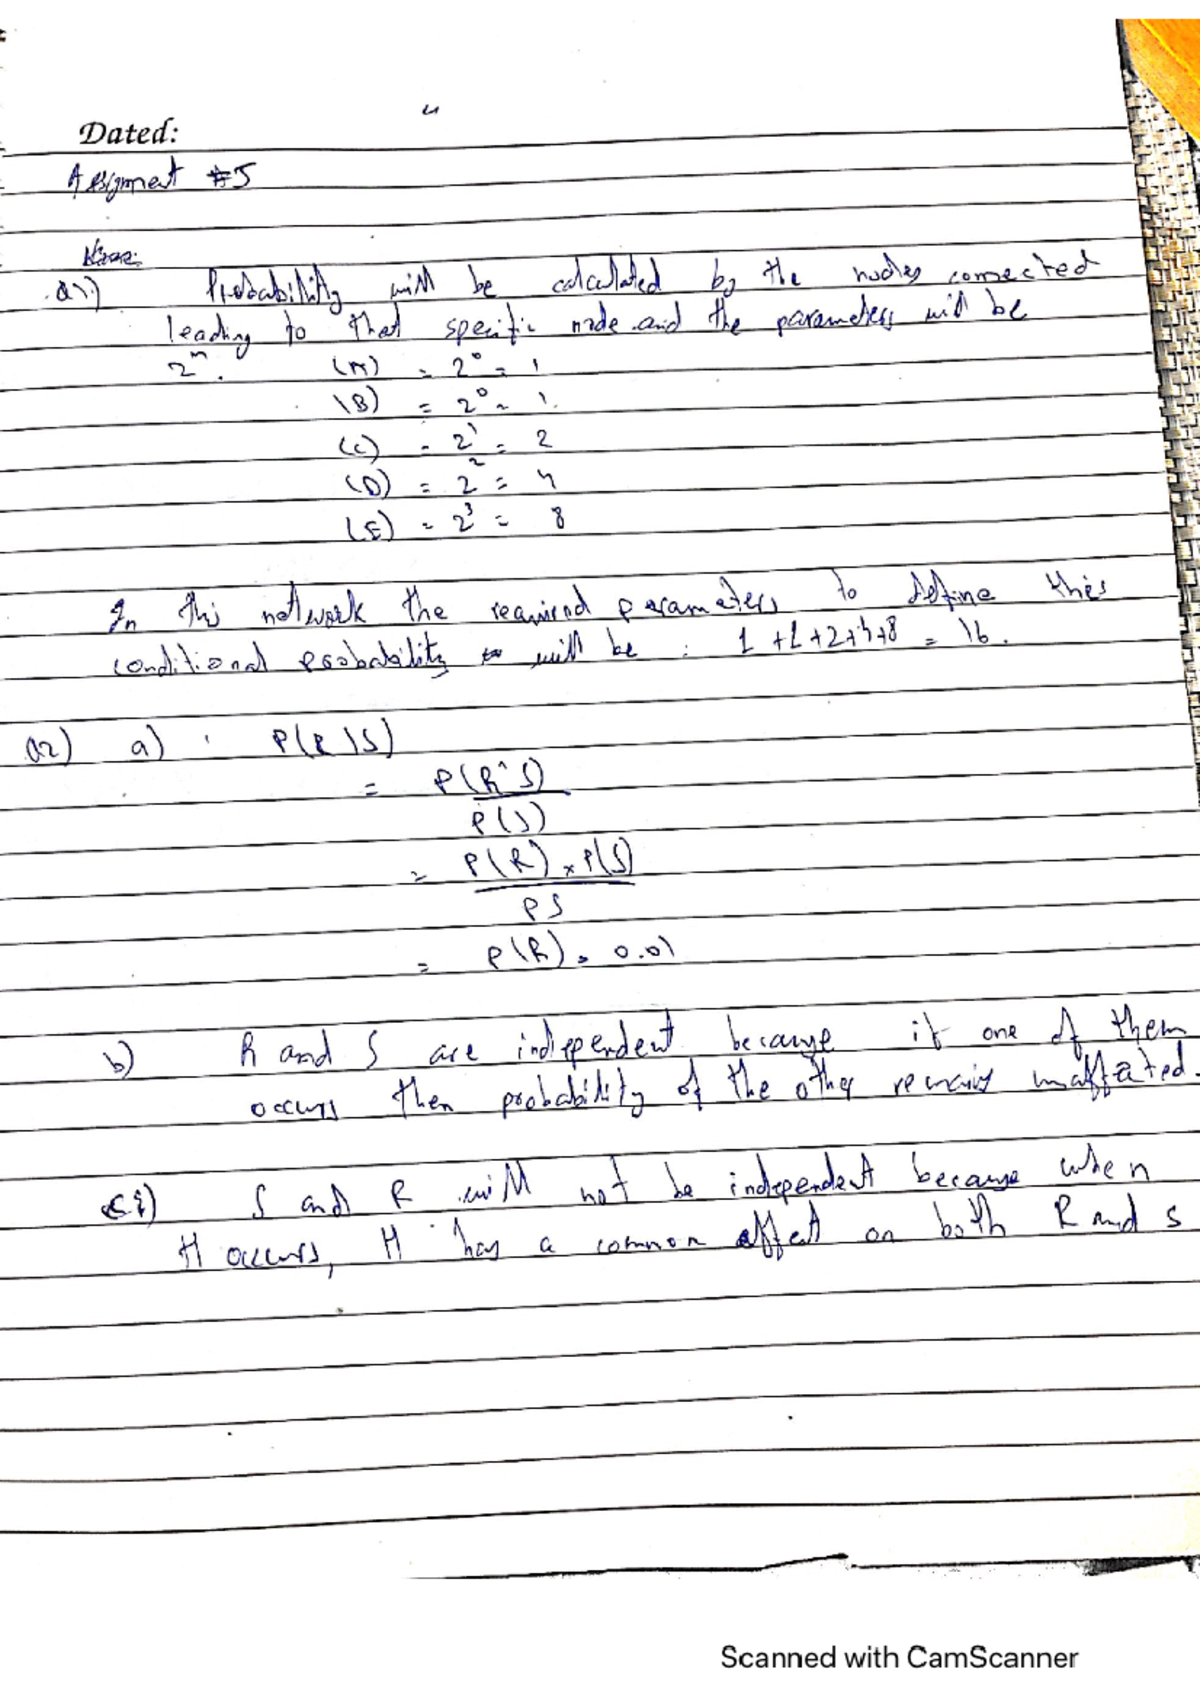 Dated:
Assignment #5
Q1) Probability will be calculated by the nodes connected
leading to that specific node and the parameters will be
2^n. (A) = 2^0 = 1
(B) = 2^0 = 1.
(C) = 2^1 = 2
(D) = 2^2 = 4
(E) = 2^3 = 8
In this network the required parameters to define this
conditional probability will be : 1 + 1 + 2 + 4 + 8 = 16.
Q2) a) P(R|S)
= P(R^S)
P(S)
= P(R) x P(S)
PS
= P(R) = 0.01
b) R and S are independent because if one of them
occurs then probability of the other remains unaffected.
S and R will not be independent because when
H occurs, H has a common effect on both R and S
Scanned with CamScanner